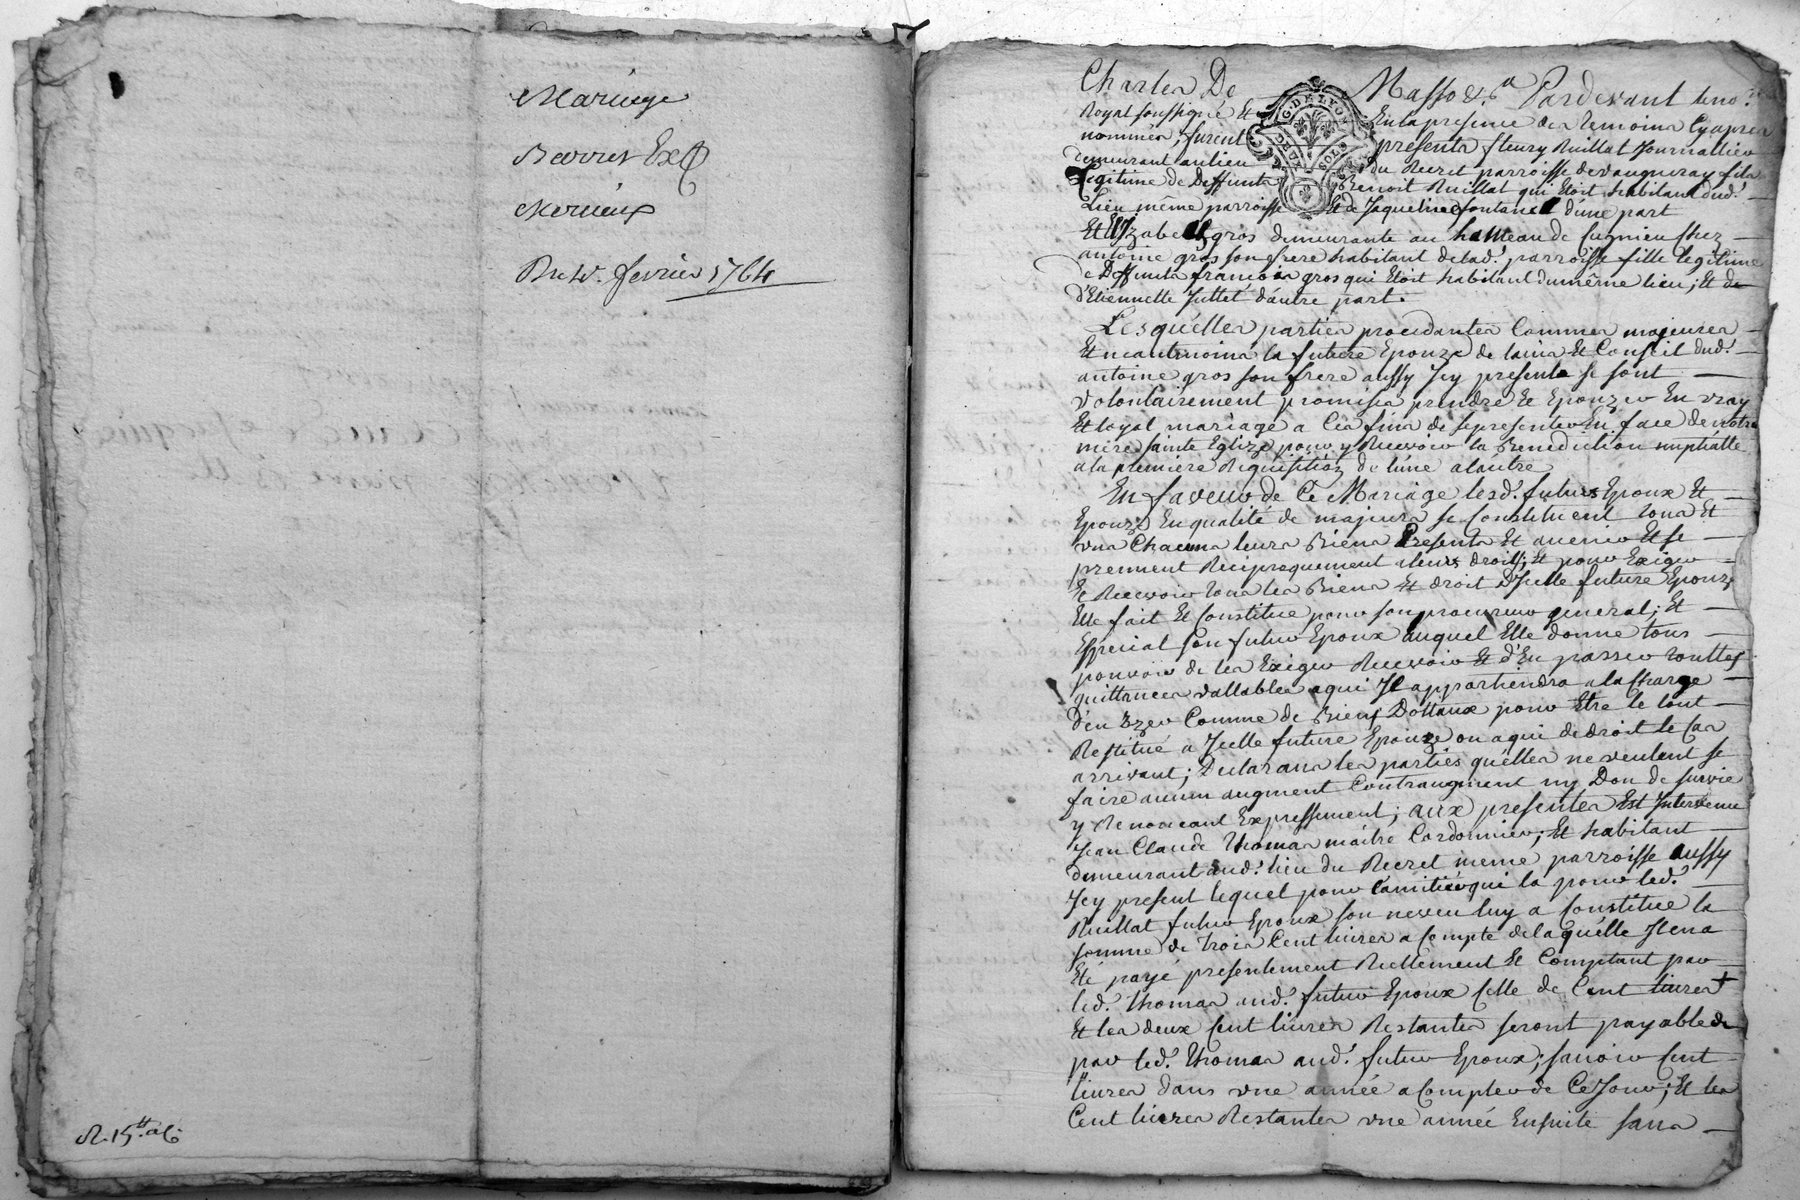 Mariage
Barret Ex
Merieux
Du . fevrier 1764
R. 15 
Charles De Masso &.a Pardevant le no.re
Royal soussigné Et En la presence des temoins Cy apres
nommés, furent presents fleury Ruillat Journallier
demeurant au lieu du Recret parroisse de Vaugneray fils
Legitime de Deffunts Benoit Ruillat qui Etoit habitant dud.
Lieu même parroisse Et de Jaqueline fontanel d'une part
Et Elizabeth gros demeurante au hameau de chez
antoine gros son frere habitant de lad. parroisse fille legitime
de Deffunts françois gros qui Etoit habitant du même lieu, Et de
d'Etiennette Juttet d'autre part.
Lesquelles parties procedantes Commes majeures
Et neantmoins la future Epouze de l'avis Et Conseil dud.
antoine gros son frere aussy Jcy present se sont
volontairement promises prendre Et Epouzer En vray
Et loyal mariage a Ces fins de se presenter En face de notre
mère sainte Eglize pour y Recevoir la Benediction nuptialle
a la premiere Requisition de l'une a l'autre
En faveur de Ce Mariage lesd. futurs Epoux Et
Epouze En qualité de majeurs se Constituent tous Et
uns Chacuns leurs Biens Presents Et avenir Et se
prennent Reciproquement a leurs droits, Et pour Exiger
Et Recevoir tous les Biens Et droit d'Jcelle future Epouze
Elle fait Et Constitue pour son procureur general, Et
Especial son futur Epoux auquel Elle donne tous
pouvoir de les Exiger Recevoir Et d'En passer touttes
quittances vallables a qui Jl appartiendra a la Charge
d'en Uzer Comme de Biens Dottaux pour Etre le tout
Restitué a Jcelle future Epouze ou a qui de droit le Cas
arrivant; Declarans les parties qu'elles ne veulent se
faire aucun augment Contraugment ny Don de survie
y Renonceant Expressement; aux presentes Est Intervenu
Jean Claude thomas maitre Cordonnier, Et habitant
demeurant aud. lieu du Recret meme parroisse aussy
Jcy present lequel pour l'amitié qu'il a pour led.
Ruillat futur Epoux son neveu luy a Constitué la
somme de trois Cent livres a Compte de laquelle Jl en a
Eté payé presentement Réellement Et Comptant par
led. thomas aud. futur Epoux Celle de Cent livres +
Et les deux Cent livres Restantes seront payables
par led. thomas aud. futur Epoux, savoir Cent
livres dans une année a Compter de Ce Jour, Et les
Cent livres Restantes une année Ensuite sans